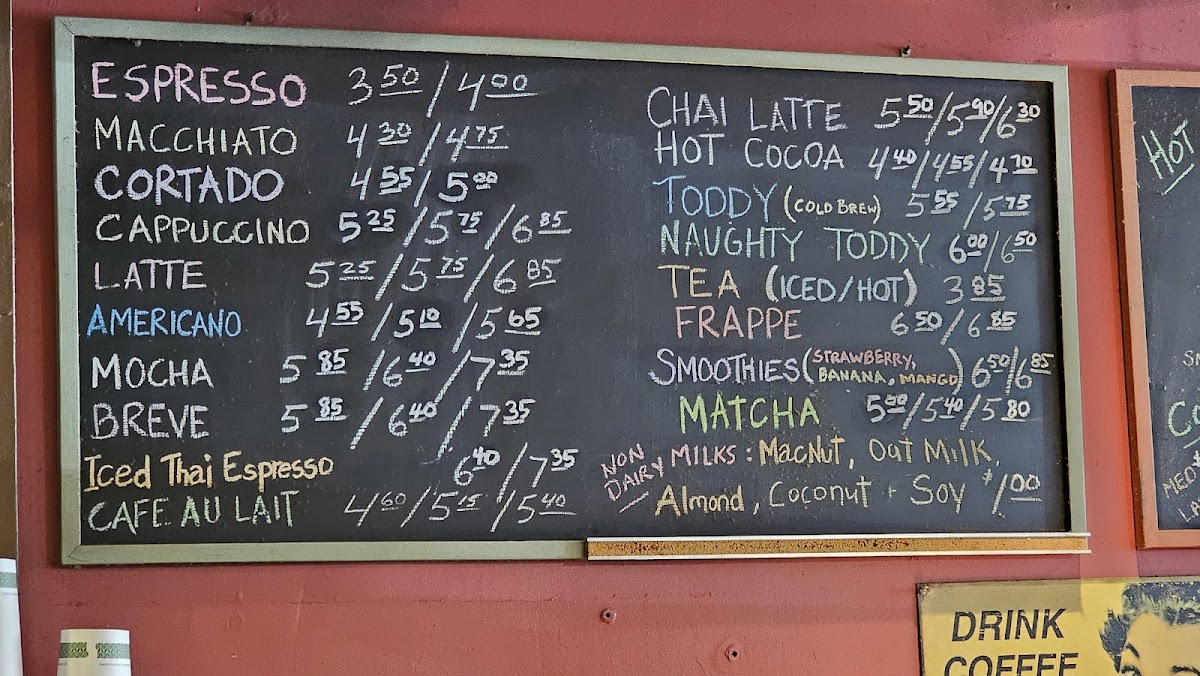 ESPRESSO 3 50 / 4 00
MACCHIATO 4 30 / 4 75
CORTADO 4 55 / 5 00
CAPPUCCINO 5 25 / 5 75 / 6 85
LATTE 5 25 / 5 75 / 6 85
AMERICANO 4 55 / 5 10 / 5 65
MOCHA 5 85 / 6 40 / 7 35
BREVE 5 85 / 6 40 / 7 35
Iced Thai Espresso 6 40 / 7 35
CAFE AU LAIT 4 60 / 5 15 / 5 40
CHAI LATTE 5 50 / 5 90 / 6 30
HOT COCOA 4 40 / 4 55 / 4 70
TODDY (COLD BREW) 5 55 / 5 75
NAUGHTY TODDY 6 00 / 6 50
TEA (ICED/HOT) 3 85
FRAPPE 6 50 / 6 85
SMOOTHIES (STRAWBERRY, BANANA, MANGO) 6 50 / 6 85
MATCHA 5 00 / 5 40 / 5 80
NON DAIRY MILKS: MACNUT, Oat MILK,
Almond, Coconut + Soy $1 00
HOT
DRINK
COFFEE